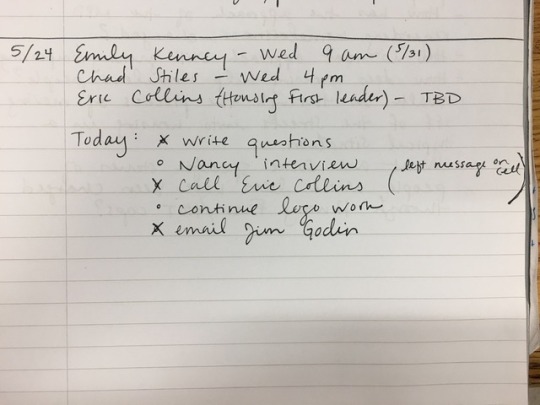 5/24 Emily Kenney - Wed 9 am (5/31)
Chad Stiles - Wed 4 pm
Eric Collins (Housing First leader) - TBD
Today: x write questions
° Nancy interview
x call Eric Collins (left message on cell)
° continue logo work
x email Jim Godin